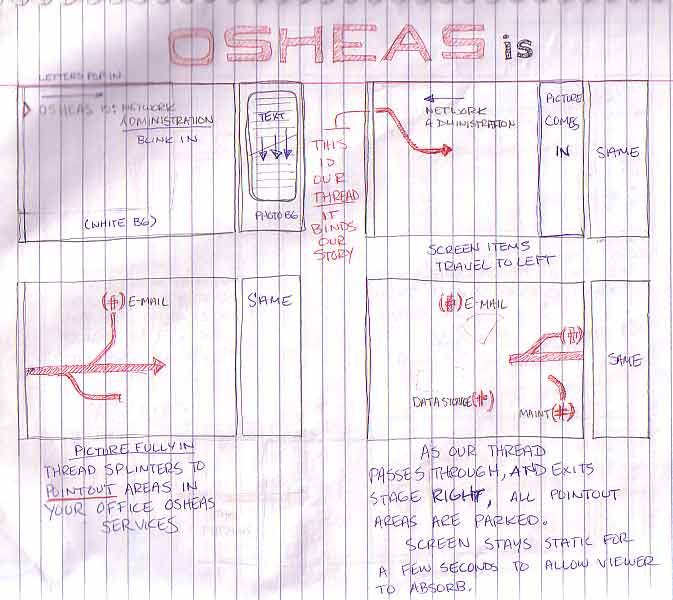 OSHEAS is
LETTERS POP IN
OSHEAS IS: NETWORK
ADMINISTRATION
BLINK IN
(WHITE BG)
TEXT
PHOTO BG
THIS
IS
OUR
THREAD
IT
BINDS
OUR
STORY
NETWORK
ADMINISTRATION
PICTURE
COMES
IN
SAME
SCREEN ITEMS
TRAVEL TO LEFT
(#) E-MAIL
SAME
PICTURE FULLY IN
THREAD SPLINTERS TO
POINTOUT AREAS IN
YOUR OFFICE OSHEAS
SERVICES
(#) E-MAIL
(#)
DATA STORAGE (#)
MAINT (#)
SAME
AS OUR THREAD
PASSES THROUGH, AND EXITS
STAGE RIGHT, ALL POINTOUT
AREAS ARE PARKED.
SCREEN STAYS STATIC FOR
A FEW SECONDS TO ALLOW VIEWER
TO ABSORB.